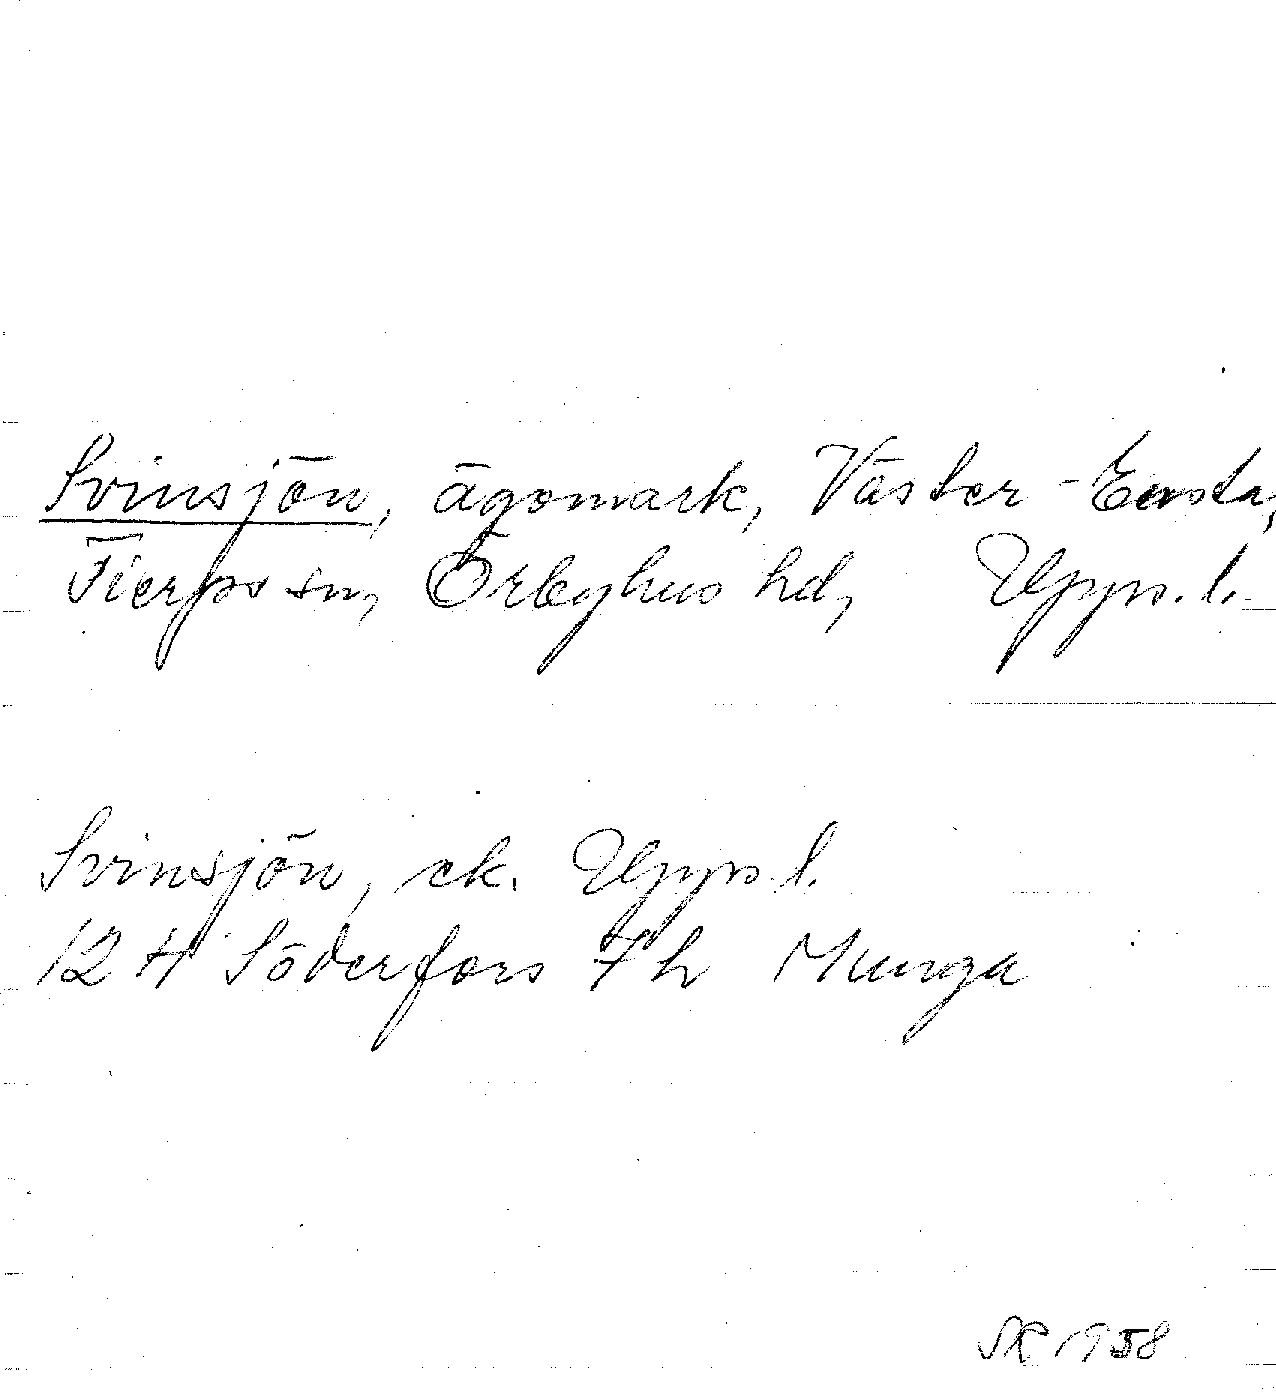 Svinsjön, ägomark, Väster-Ensta,
Tierps sn, Örbyhus hd, Upps. l.
Svinsjön, ek. Upps l.
12 H Söderfors 7 h Munga
SK 1958